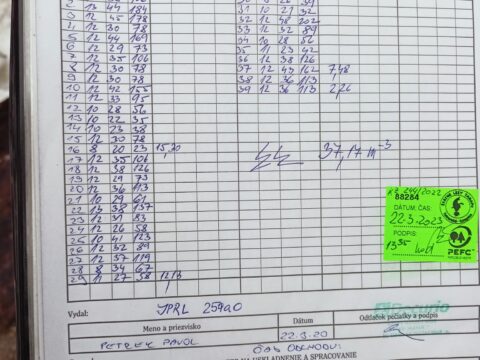 2 13 44 184
3 12 45 178
4 12 30 78
5 12 44 169
6 12 29 73
7 12 35 106
8 12 30 78
9 12 30 78
10 12 42 155
11 12 33 95
12 10 28 56
13 10 22 35
14 10 23 38
15 12 30 78
16 8 20 23 15,20
17 12 35 106
18 12 38 126
19 12 29 73
20 12 36 113
21 10 29 61
22 13 38 137
23 12 31 83
24 12 26 58
25 10 41 123
26 12 32 89
27 12 37 119
28 8 34 67
29 11 27 58 12,13
31 10 27 52
32 12 48 202
33 12 32 89
34 10 28 56
35 11 23 42
36 12 38 126
37 12 43 162 7,48
38 12 36 113
39 12 36 113 2,26
37,17 m³
KZ 244/2022
88284
DÁTUM: ČAS:
22.3.2023
PODPIS:
13 35
PEFC
Vydal:
JPRL 259a0
Meno a priezvisko
Dátum
Odtlačok pečiatky a podpis
PETREK PAVOL
22.3.20
ČAS ODCHODU:
NA USKLADNENIE A SPRACOVANIE